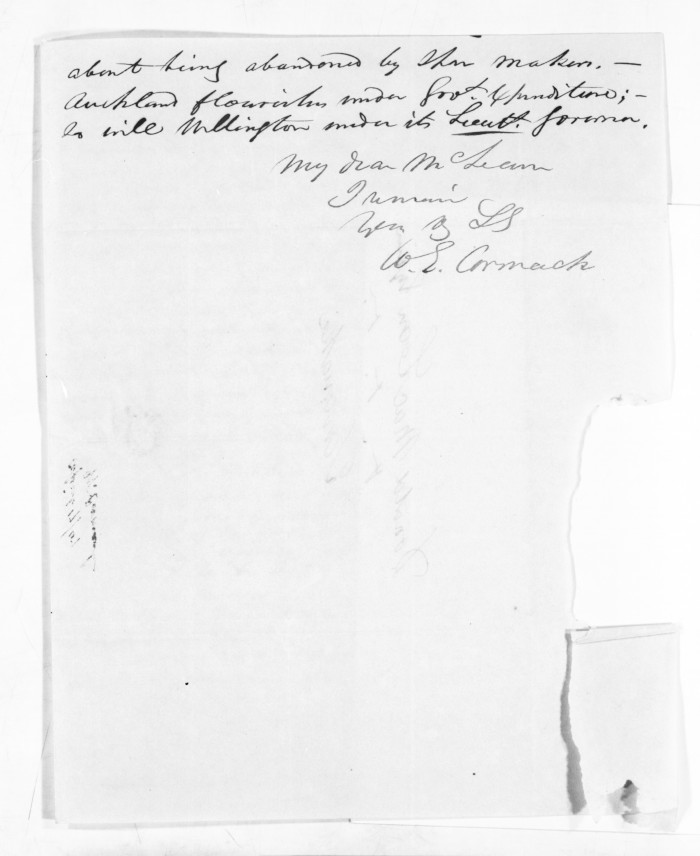 about being abandoned by their makers. —
Auckland flourishes under Govt. Expenditure; —
so will Wellington under its Lieut. Governor.
My dear McLean
I remain
W. E. Cormack